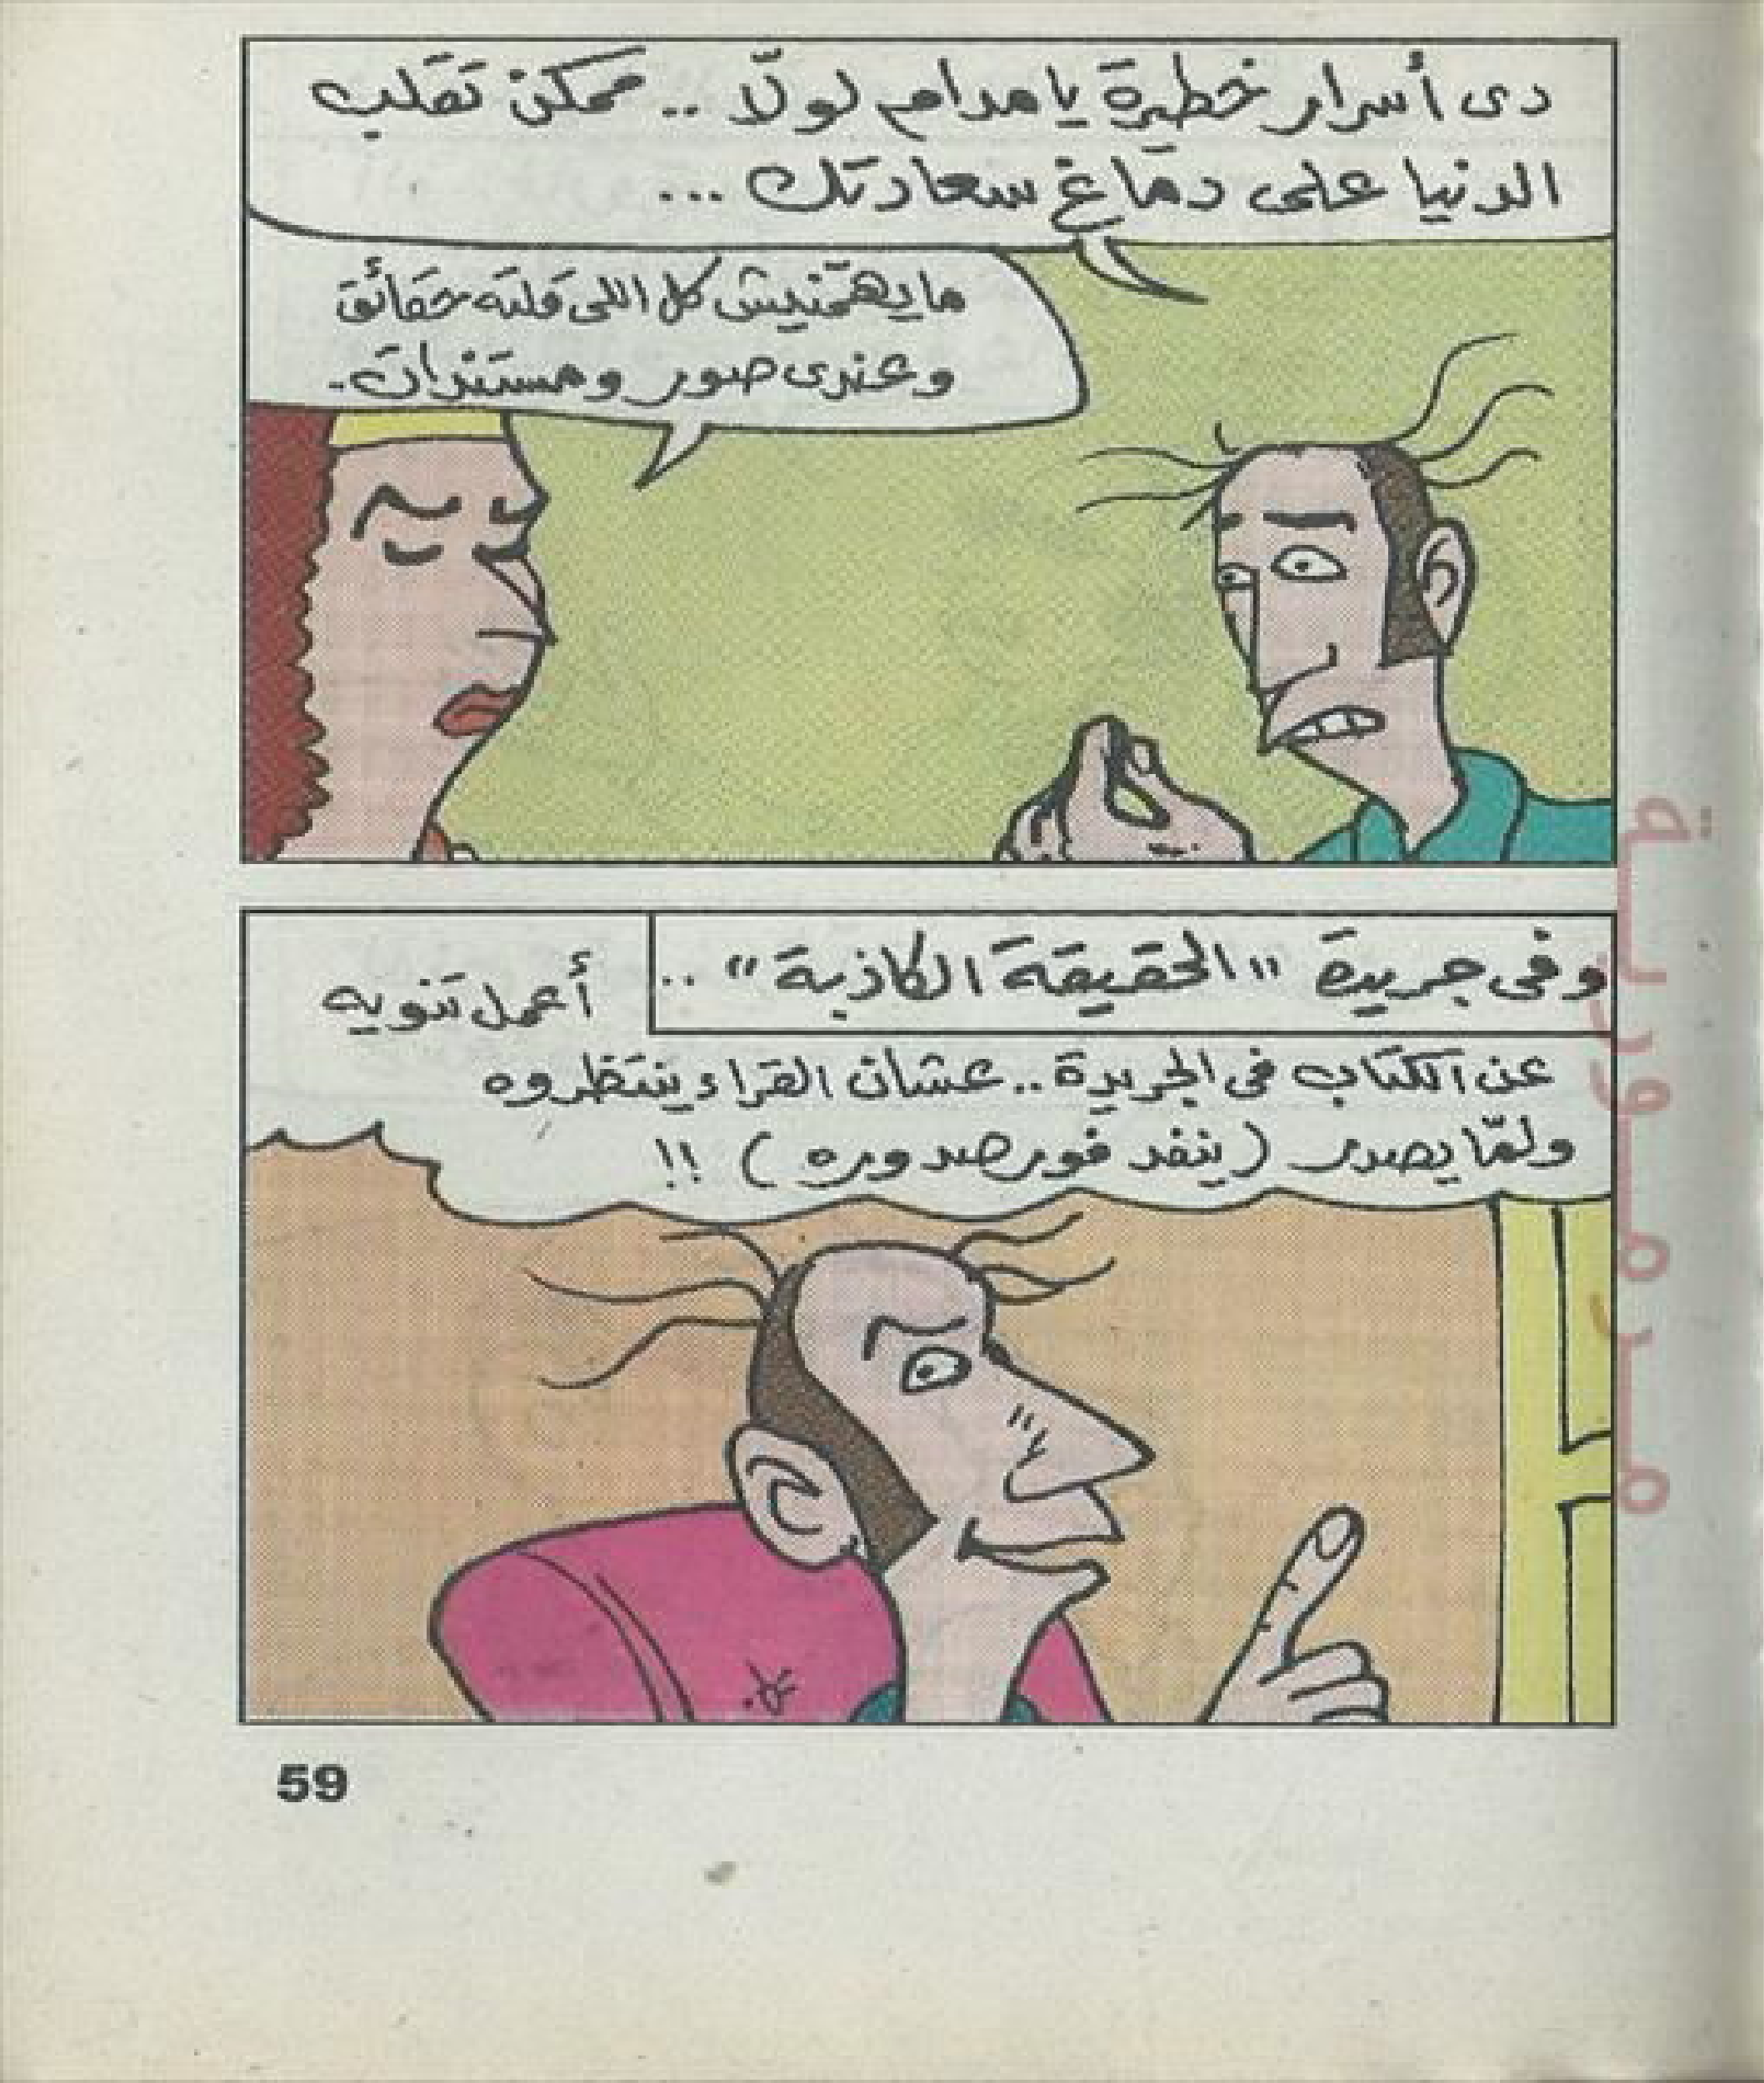 دى أسرار خطيرة يا مدام لولّا .. ممكن تقلب
الدنيا على دماغ سعادتك ...
ما يهمّنيش كل اللى قلته حقائق
وعندى صور ومستندات .
وفى جريدة "الحقيقة الكاذبة" ..
أعمل تنويه
عن الكتاب فى الجريدة .. عشان القراء ينتظروه
ولمّا يصدر (ينفد فور صدوره) !!
59